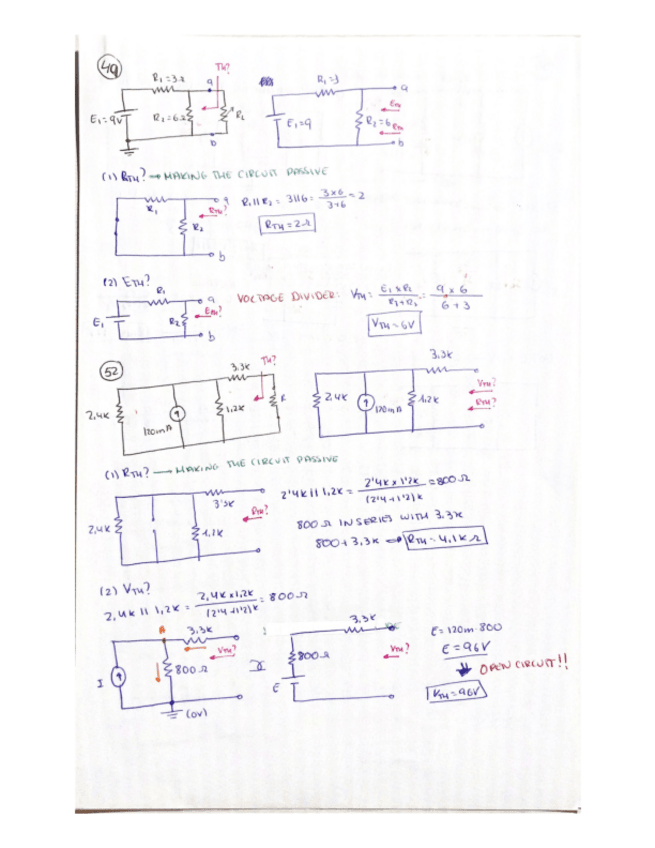 49
TH?
R₁=3Ω a
E₁=9V R₂=6Ω RL
b
R₁=3 a
E₁=9 R₂=6 ETH
RTH
b
(1) RTH? → MAKING THE CIRCUIT PASSIVE
R₁ RTH? a
R₂
b
R₁||R₂ = 3||6 = 3×6 / 3+6 = 2
RTH = 2Ω
(2) ETH?
R₁ a
E₁ R₂ ETH?
b
VOLTAGE DIVIDER: VTH = E₁×R₂ / R₂+R₁ = 9 × 6 / 6 + 3
VTH = 6V
52
3.3K TH?
2.4K 120mA 1.2K R
3.3K
2.4K 120mA 1.2K VTH?
RTH?
(1) RTH? → MAKING THE CIRCUIT PASSIVE
3'3K
2,4K 1.2K RTH?
2'4K || 1,2K = 2'4K × 1'2K / (2'4+1'2)K = 800Ω
800Ω IN SERIES WITH 3.3K
800+3,3K ⇒ RTH = 4,1KΩ
(2) VTH?
2,4K || 1,2K = 2,4K×1,2K / (2'4+1'2)K = 800Ω
A 3,3K
I 800Ω VTH?
(0V)
3,3K
800Ω VTH?
E
E = 120m·800
E = 96V
OPEN CIRCUIT!!
VTH = 96V